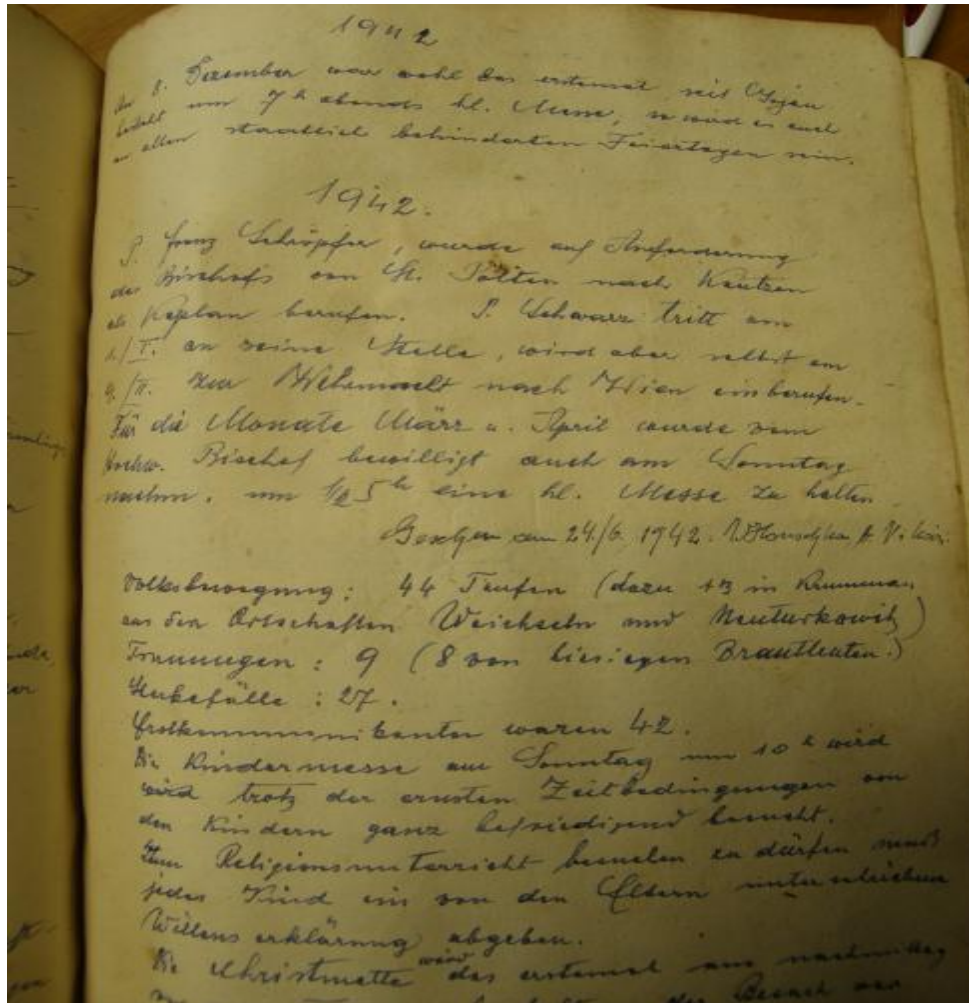 1942
Am 8. Dezember war wohl das erstemal seit Gojau
besteht um 7 h abends hl. Messe, so wird es auch
an allen staatlich behinderten Feiertagen sein.
1942.
P. Franz Schöpfer, wurde auf Anforderung
des Bischofs von St. Pölten nach Kautzen
als Kaplan berufen. P. Schwarz tritt am
an seine Stelle, wird aber selbst am
9./II. zur Wehrmacht nach Wien einberufen.
Für die Monate März u. April wurde vom
Hochw. Bischof bewilligt auch am Sonntag
nachm. um 1/2 5 h eine hl. Messe zu halten
Gesehen am 24./6. 1942.
Volksbewegung: 44 Taufen (dazu +3 in Krummau
aus den Ortschaften Weichseln und Neuturkowitz)
Trauungen: 9 (8 von hiesigen Brautleuten.)
Sterbefälle: 27.
Erstkommunikanten waren 42.
Die Kindermesse am Sonntag um 10 h wird
wird trotz der ernsten Zeitbedingungen von
den Kindern ganz befriedigend besucht.
Zum Religionsunterricht besuchen zu dürfen muß
jedes Kind ein von den Eltern unterschriebene
Willenserklärung abgeben.
Die Christmette wird das erstemal am nachmittag
der Besuch war